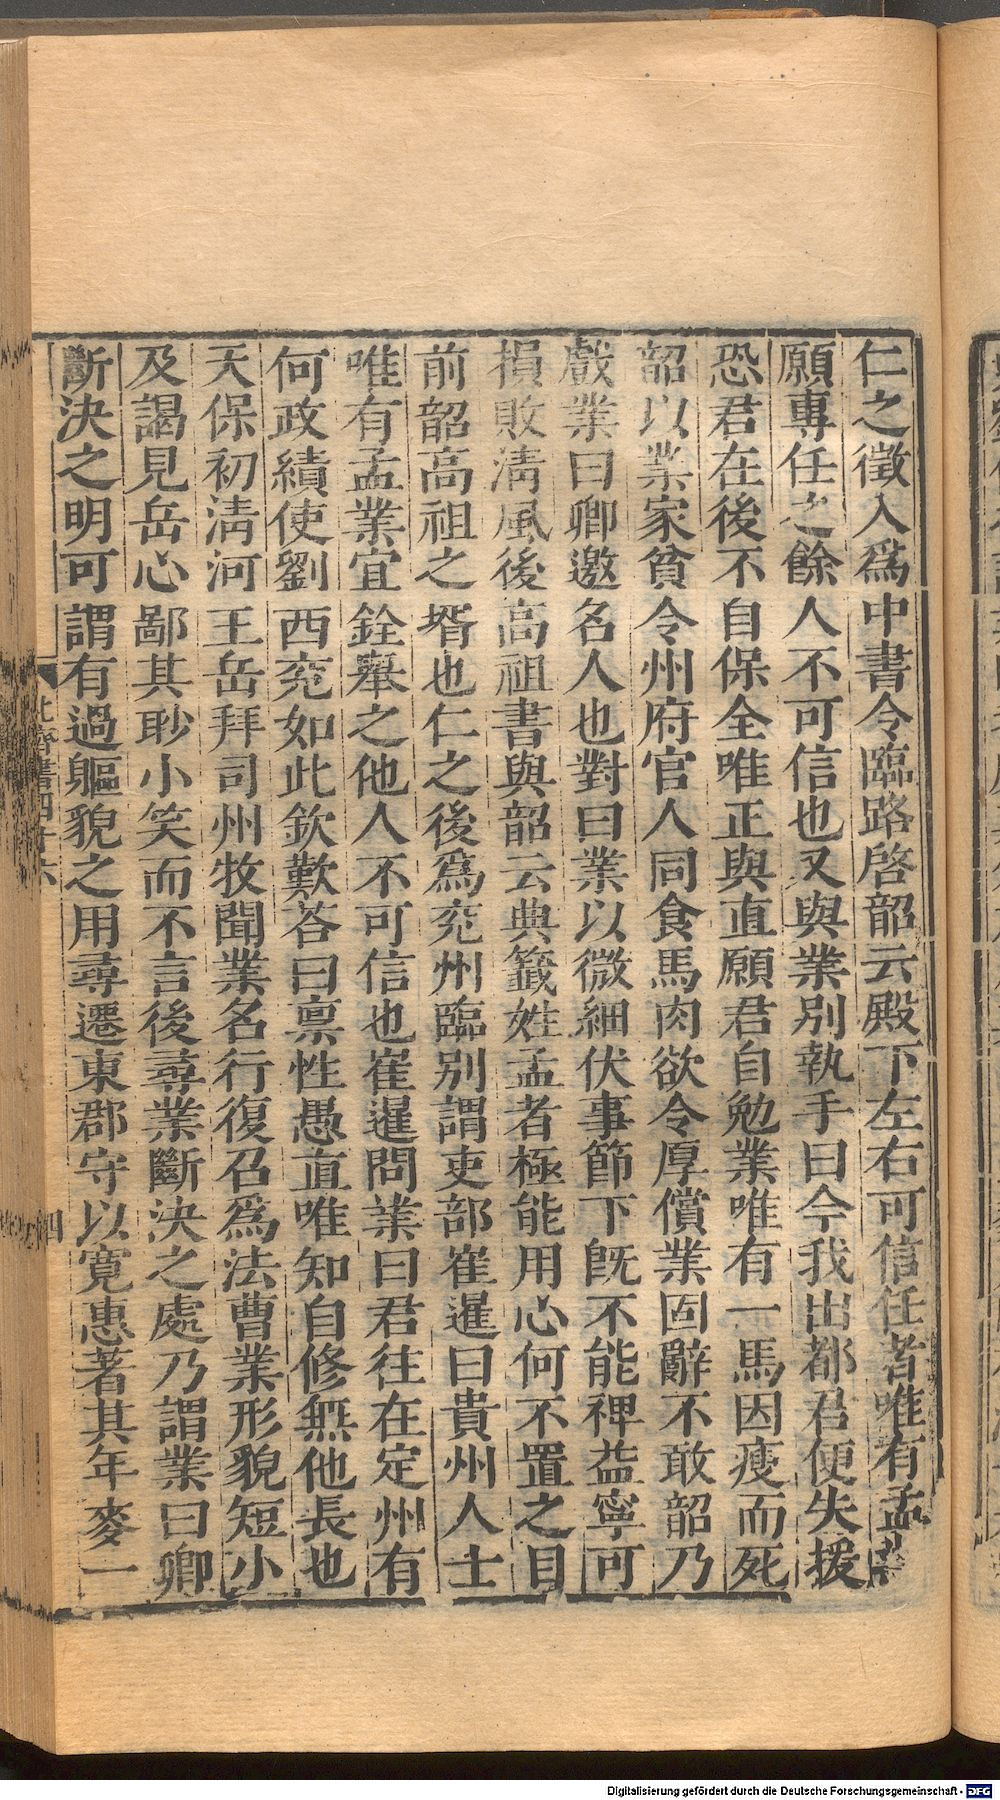 仁之徵入爲中書令臨路啓韶云殿下左右可信任者唯有孟業
願專任之餘人不可信也又與業別執手曰今我出都君便失援
恐君在後不自保全唯正與直願君自勉業唯有一馬因瘦而死
韶以業家貧令州府官人同食馬肉欲令厚償業固辭不敢韶乃
戲業曰卿邀名人也對曰業以微細伏事節下旣不能裨益寧可
損敗淸風後高祖書與韶云典籤姓孟者極能用心何不置之目
前韶高祖之壻也仁之後爲兖州臨別謂吏部崔暹曰貴州人士
唯有孟業宜銓舉之他人不可信也崔暹問業曰君往在定州有
何政績使劉西兖如此欽歎荅曰禀性愚直唯知自修無他長也
天保初淸河王岳拜司州牧聞業名行復召爲法曹業形貌短小
及謁見岳心鄙其眇小笑而不言後尋業斷決之處乃謂業曰卿
斷決之明可謂有過軀貌之用尋遷東郡守以寬惠著其年麥一
北齊書四十六
四
Digitalisierung gefördert durch die Deutsche Forschungsgemeinschaft - DFG